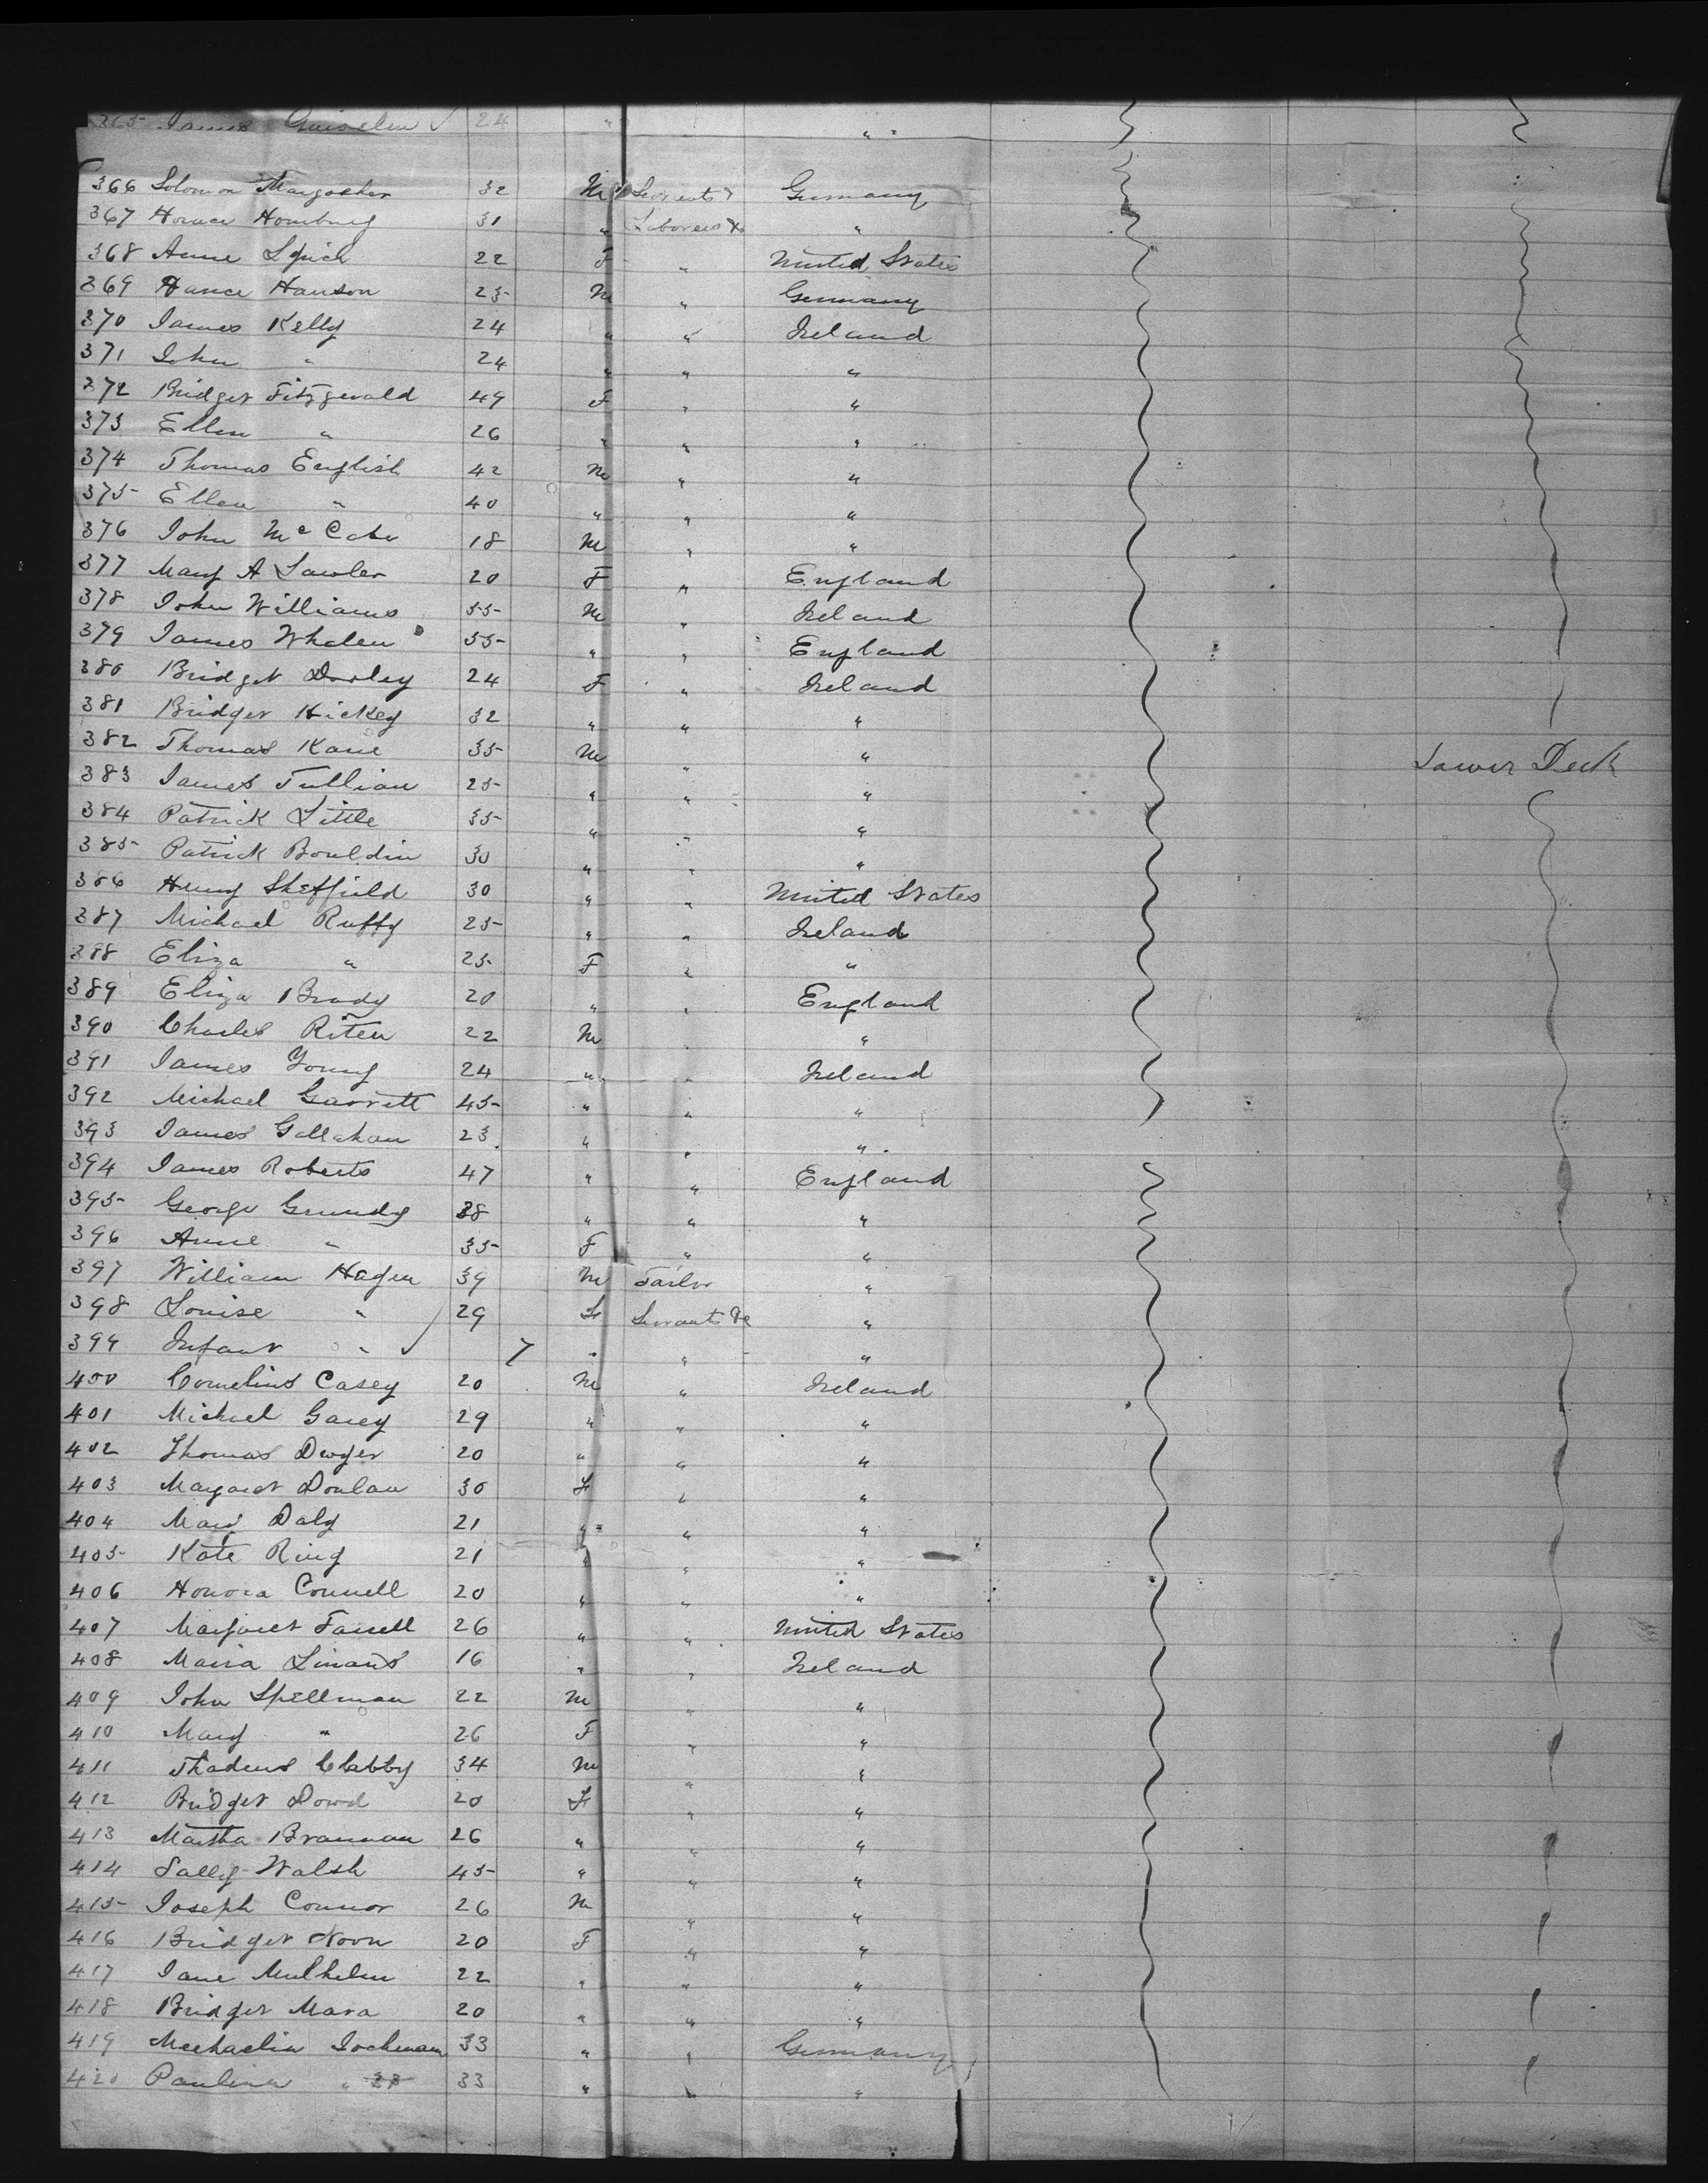 365 James 24 " " "
366 Solomon Margocher 32 M Servants & Germany
367 Horace Homburg 31 " Laborers &c "
368 Anne Lynch 22 F " United States
369 Hance Hanson 25 M " Germany
370 James Kelly 24 " " Ireland
371 John " 24 " " "
372 Bridget Fitzgerald 49 F " "
373 Ellen " 26 " " "
374 Thomas English 42 M " "
375 Ellen " 40 " " "
376 John McCabe 18 M " "
377 Mary A Lawler 20 F " England
378 John Williams 55 M " Ireland
379 James Whalen 55 " " England
380 Bridget Dooley 24 F " Ireland
381 Bridget Hickey 32 " " "
382 Thomas Kane 35 M " " Lower Deck
383 James Tullian 25 " " "
384 Patrick Little 35 " " "
385 Patrick Bouldin 30 " " "
386 Henry Sheffield 30 " " United States
387 Michael Ruffy 25 " " Ireland
388 Eliza " 25 F " "
389 Eliza Brady 20 " " England
390 Charles Riten 22 M " "
391 James Young 24 " " Ireland
392 Michael Garrett 45 " " "
393 James Gallahan 23 " " "
394 James Roberts 47 " " England
395 George Grundy 38 " " "
396 Anne " 35 F " "
397 William Hagen 39 M Tailor "
398 Louise " 29 F Servants &c "
399 Infant " 7 " " "
400 Cornelius Casey 20 M " Ireland
401 Michael Garey 29 " " "
402 Thomas Dwyer 20 " " "
403 Margaret Donlan 30 F " "
404 Mary Daly 21 " " "
405 Kate Ring 21 " " "
406 Honora Connell 20 " " "
407 Margaret Farrell 26 " " United States
408 Maria Linans 16 " " Ireland
409 John Spellman 22 M " "
410 Mary " 26 F " "
411 Thadeus Clabby 34 M " "
412 Bridget Dowd 20 F " "
413 Martha Brannan 26 " " "
414 Sally Walsh 45 " " "
415 Joseph Connor 26 M " "
416 Bridget Noon 20 F " "
417 Jane Mulhelm 22 " " "
418 Bridget Mara 20 " " "
419 Mechaelin Jochmann 33 " " Germany
420 Paulina " 33 " " "